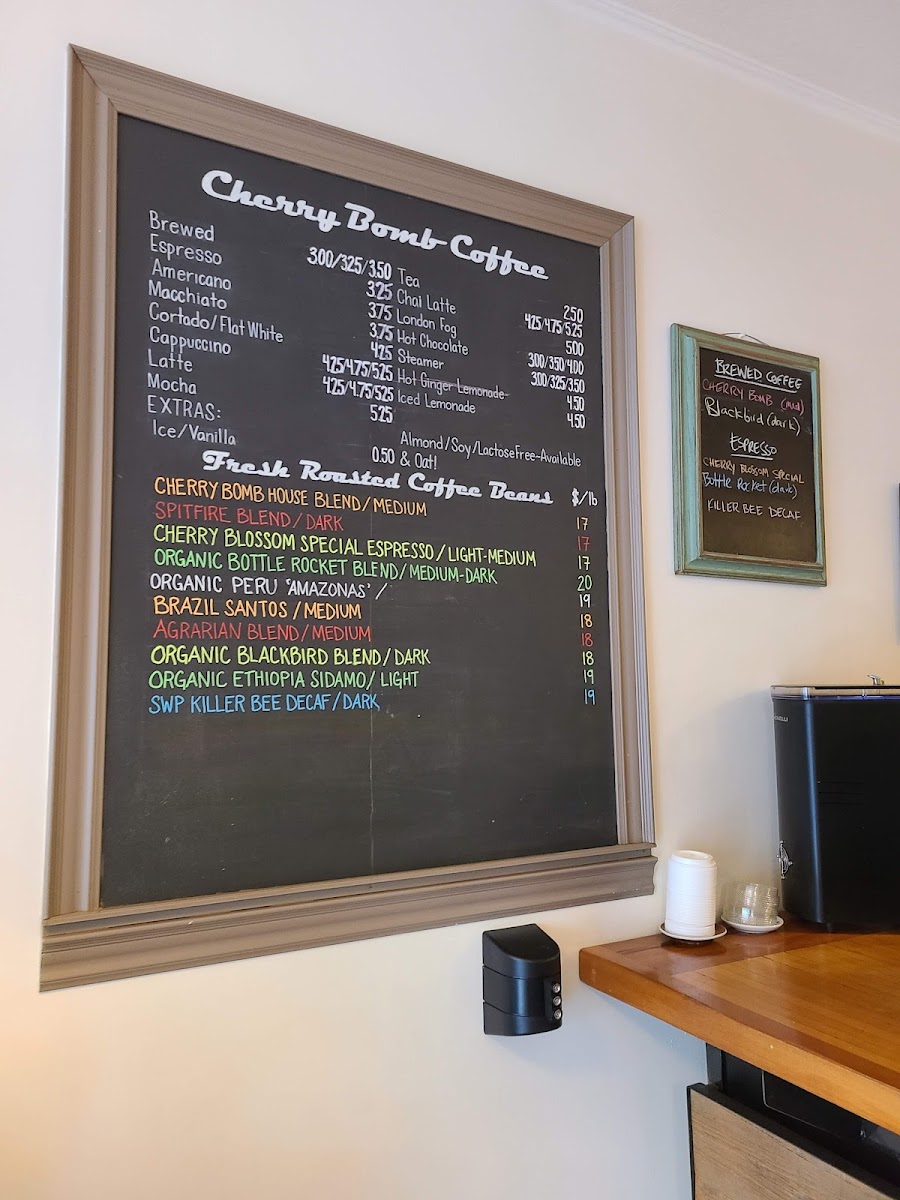 Cherry Bomb Coffee
Brewed 3.00/3.25/3.50 Tea 2.50
Espresso 3.25 Chai Latte 4.25/4.75/5.25
Americano 3.75 London Fog 5.00
Macchiato 3.75 Hot Chocolate 3.00/3.50/4.00
Cortado/Flat White 4.25 Steamer 3.00/3.25/3.50
Cappuccino 4.25/4.75/5.25 Hot Ginger Lemonade 4.50
Latte 4.25/4.75/5.25 Iced Lemonade 4.50
Mocha 5.25
EXTRAS: Almond/Soy/Lactose Free-Available
Ice/Vanilla 0.50 & Oat!
Fresh Roasted Coffee Beans $/lb
CHERRY BOMB HOUSE BLEND/MEDIUM 17
SPITFIRE BLEND/DARK 17
CHERRY BLOSSOM SPECIAL ESPRESSO/LIGHT-MEDIUM 17
ORGANIC BOTTLE ROCKET BLEND/MEDIUM-DARK 20
ORGANIC PERU 'AMAZONAS' / 19
BRAZIL SANTOS/MEDIUM 18
AGRARIAN BLEND/MEDIUM 18
ORGANIC BLACKBIRD BLEND/DARK 18
ORGANIC ETHIOPIA SIDAMO/LIGHT 19
SWP KILLER BEE DECAF/DARK 19
BREWED COFFEE
CHERRY BOMB (med)
Blackbird (dark)
ESPRESSO
CHERRY BLOSSOM SPECIAL
Bottle Rocket (dark)
KILLER BEE DECAF